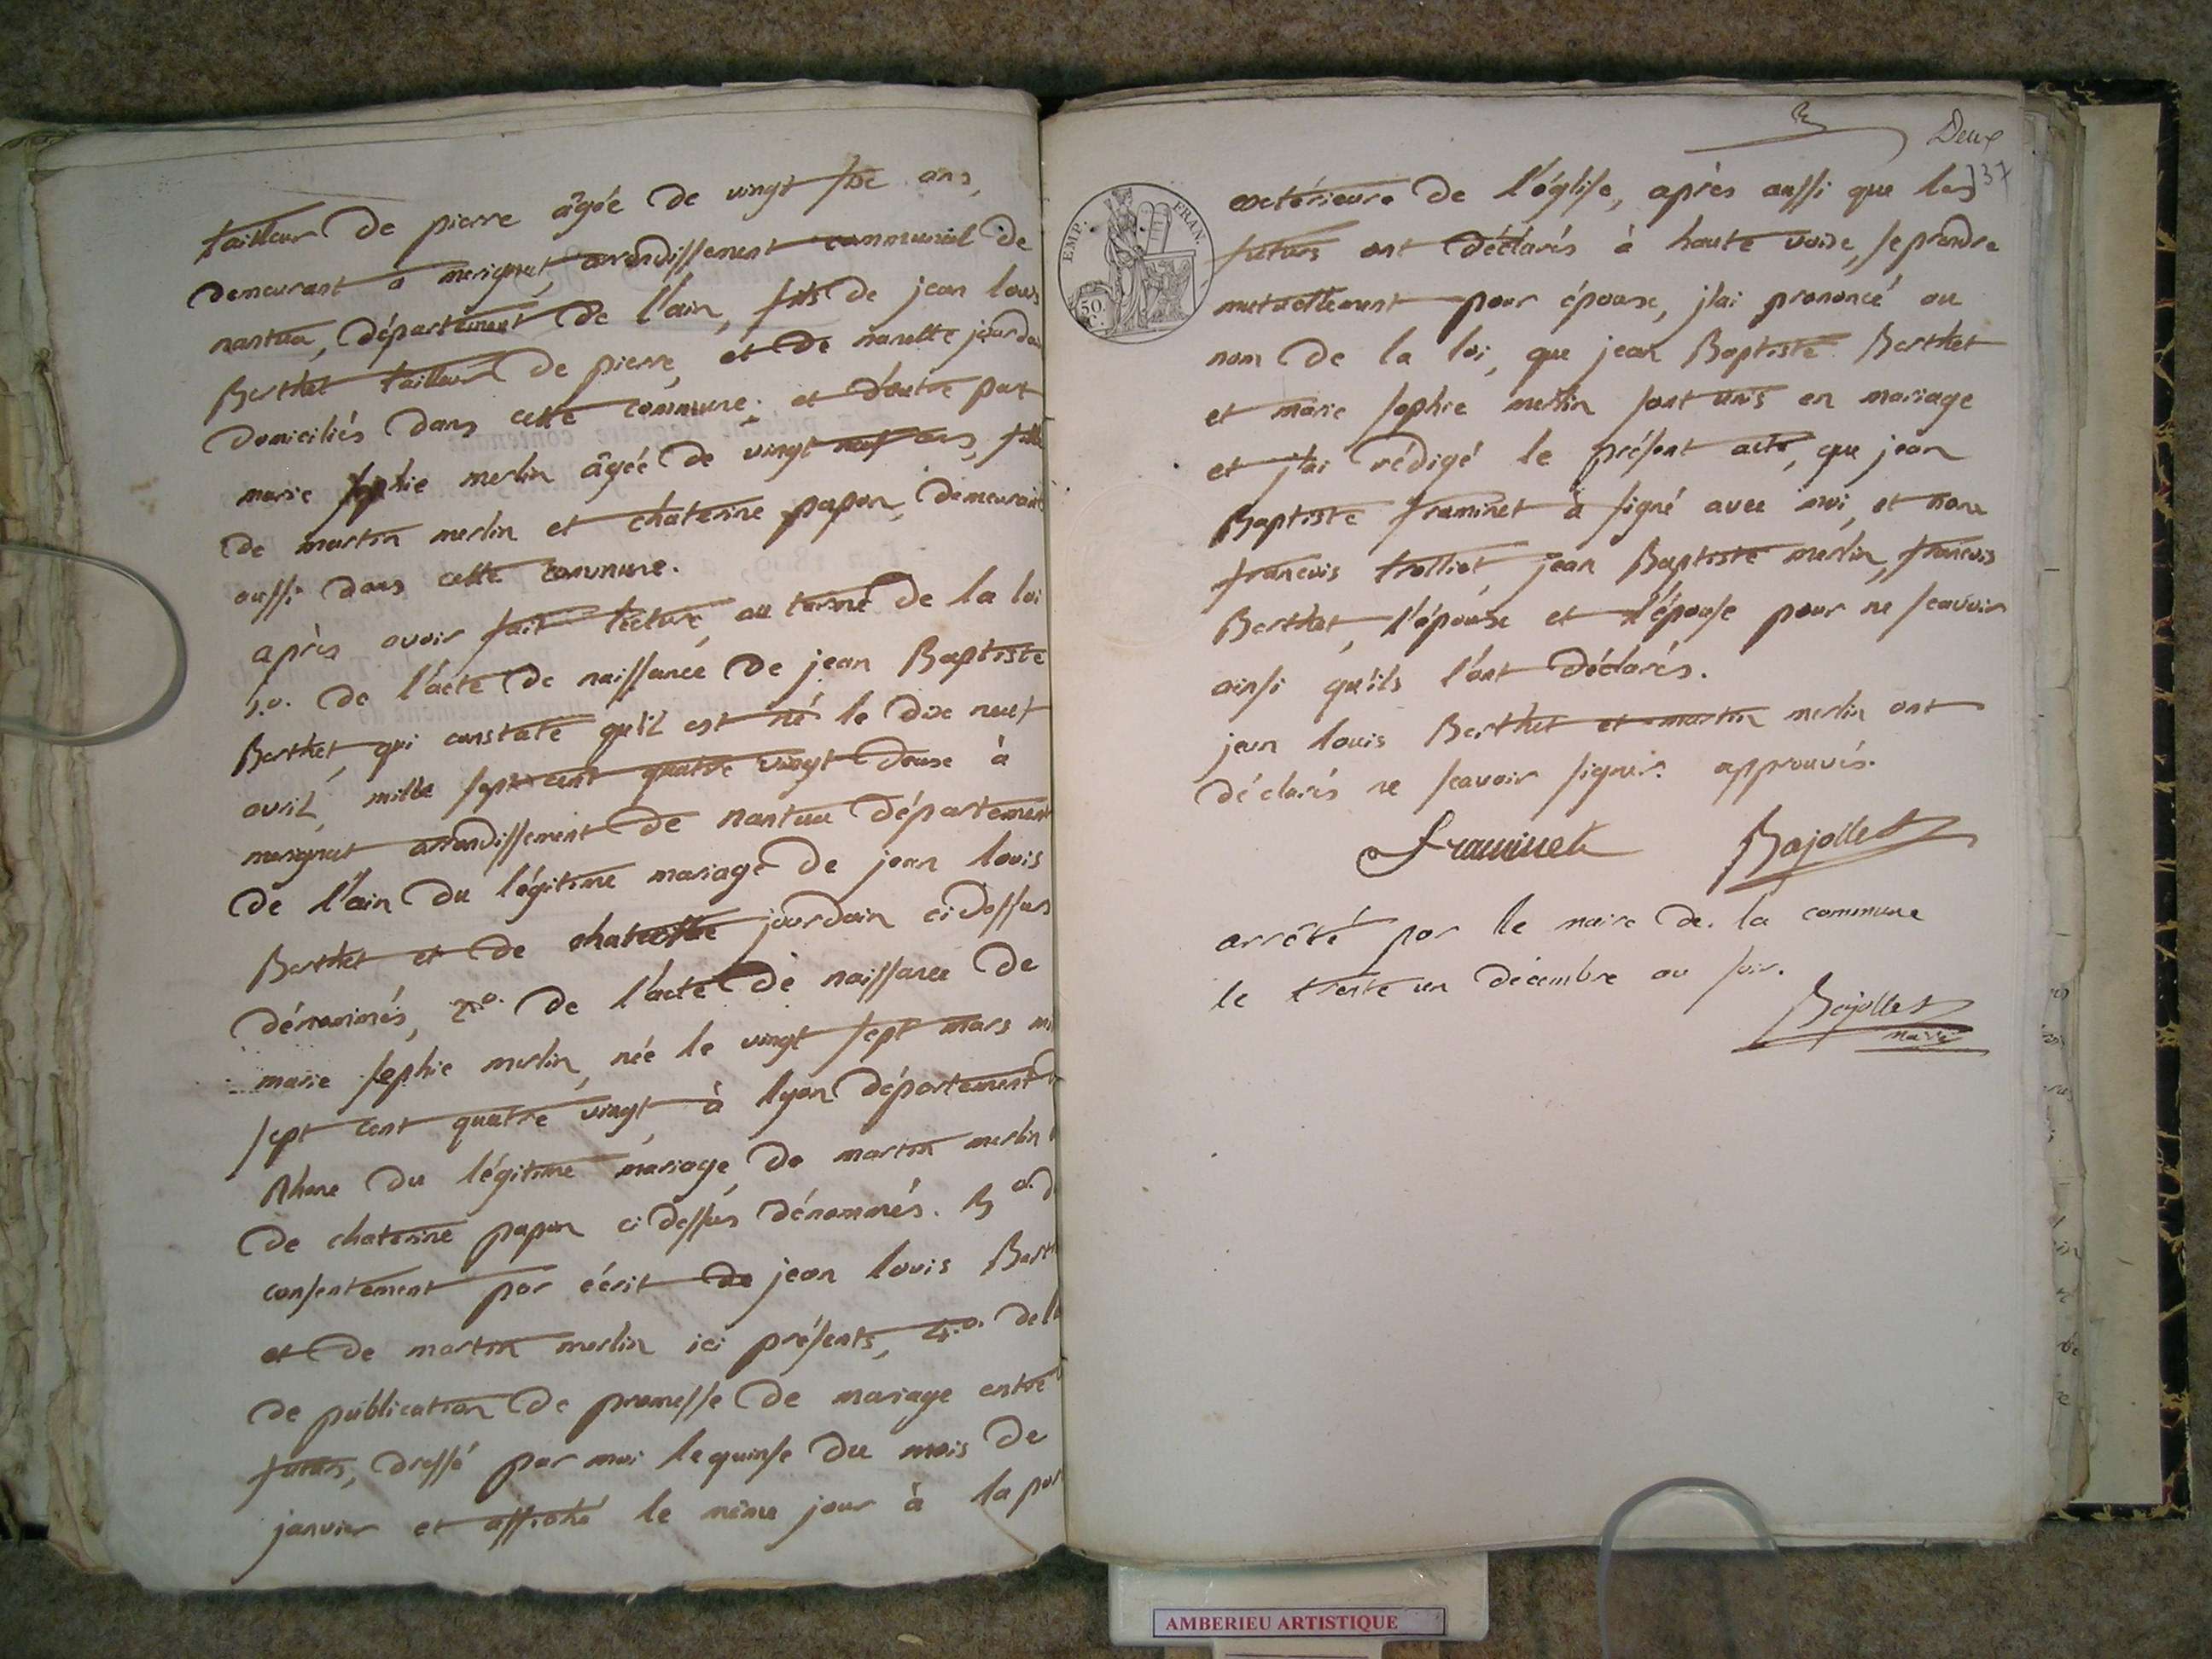 tailleur de pierre âgée de vingt six ans,
demeurant a merignat, arondissement communal de
nantua, département de l'ain, fils de jean louis
Berthet tailleur de pierre, et de nanette jourdain
domiciliés dans cette commune; et d'autre part
marie sophie merlin âgée de vingt neuf ans, fille
de martin merlin et chaterine papon, demeurant
aussi dans cette commune.
après avoir fait lecture, au terme de la loi
1.o. de l'acte de naissance de jean Baptiste
Berthet, qui constate qu'il est né le dix neuf
avril, mille sept cent quatre vingt douse à
merignat arrondissement de nantua département
de l'ain du légitime mariage de jean louis
Berthet et de jourdain ci dessus
dénommés, 2.o. de l'acte de naissance de
marie sophie merlin, née le vingt sept mars mi
sept cent quatre vingt, à lyon département
Rhone du légitime mariage de martin merlin
de chaterine papon ci dessus dénommés. 3.o. d
consentement par éérit de jean louis Berth
et de martin merlin ici présents, 4.o. de l
de publication de promesse de mariage entre
futurs, dressé par moi le quinse du mois de
janvier et affiché le même jour à la por
Deux
137
EMP. FRAN.
50. C.
exterieure de l'église, après aussi que les
futurs ont déclarés à haute voixe, se prendre
mutuellement pour épouse, j'ai prononcé au
nom de la loi, que jean Baptiste Berthet
et marie sophie merlin sont unis en mariage
et j'ai rédigé le présent acte, que jean
Baptiste framinet à signé avec moi, et non
francois trolliet, jean Baptiste merlin, francois
Berthet, l'épouse et l'épouse pour ne scavoir
ainsi qu'ils l'ont déclarés.
jean louis Berthet et martin merlin ont
déclarés ne scavoir signer. approuvés.
Framinet Bajollet
arrêté par le maire de la commune
le trente un décembre au soir.
Bajollet
maire
AMBERIEU ARTISTIQUE